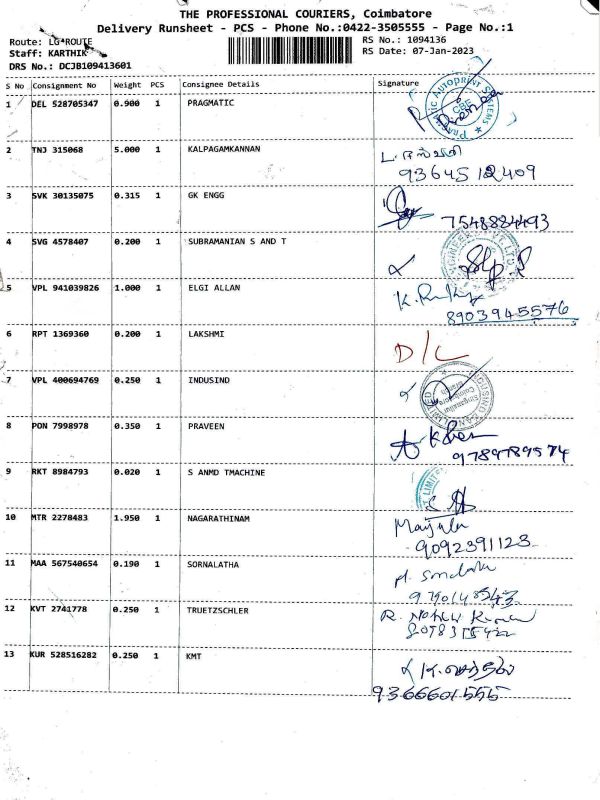 THE PROFESSIONAL COURIERS, Coimbatore
Delivery Runsheet - PCS - Phone No.:0422-3505555 - Page No.:1
Route: LG*ROUTE
RS No.: 1094136
Staff: KARTHIK
RS Date: 07-Jan-2023
DRS No.: DCJB109413601
S No Consignment No Weight PCS Consignee Details Signature
1 DEL 528705347 0.900 1 PRAGMATIC
2 TNJ 315068 5.000 1 KALPAGAMKANNAN
9364512409
3 SVK 30135075 0.315 1 GK ENGG
7548884493
4 SVG 4578407 0.200 1 SUBRAMANIAN S AND T
5 VPL 941039826 1.000 1 ELGI ALLAN
8903945576
6 RPT 1369360 0.200 1 LAKSHMI D/L
7 VPL 400694769 0.250 1 INDUSIND
8 PON 7998978 0.350 1 PRAVEEN
9789789574
9 RKT 8984793 0.020 1 S ANMD TMACHINE
10 MTR 2278483 1.950 1 NAGARATHINAM
9092391123
11 MAA 567540654 0.190 1 SORNALATHA
12 KVT 2741778 0.250 1 TRUETZSCHLER
13 KUR 528516282 0.250 1 KMT
9366601555